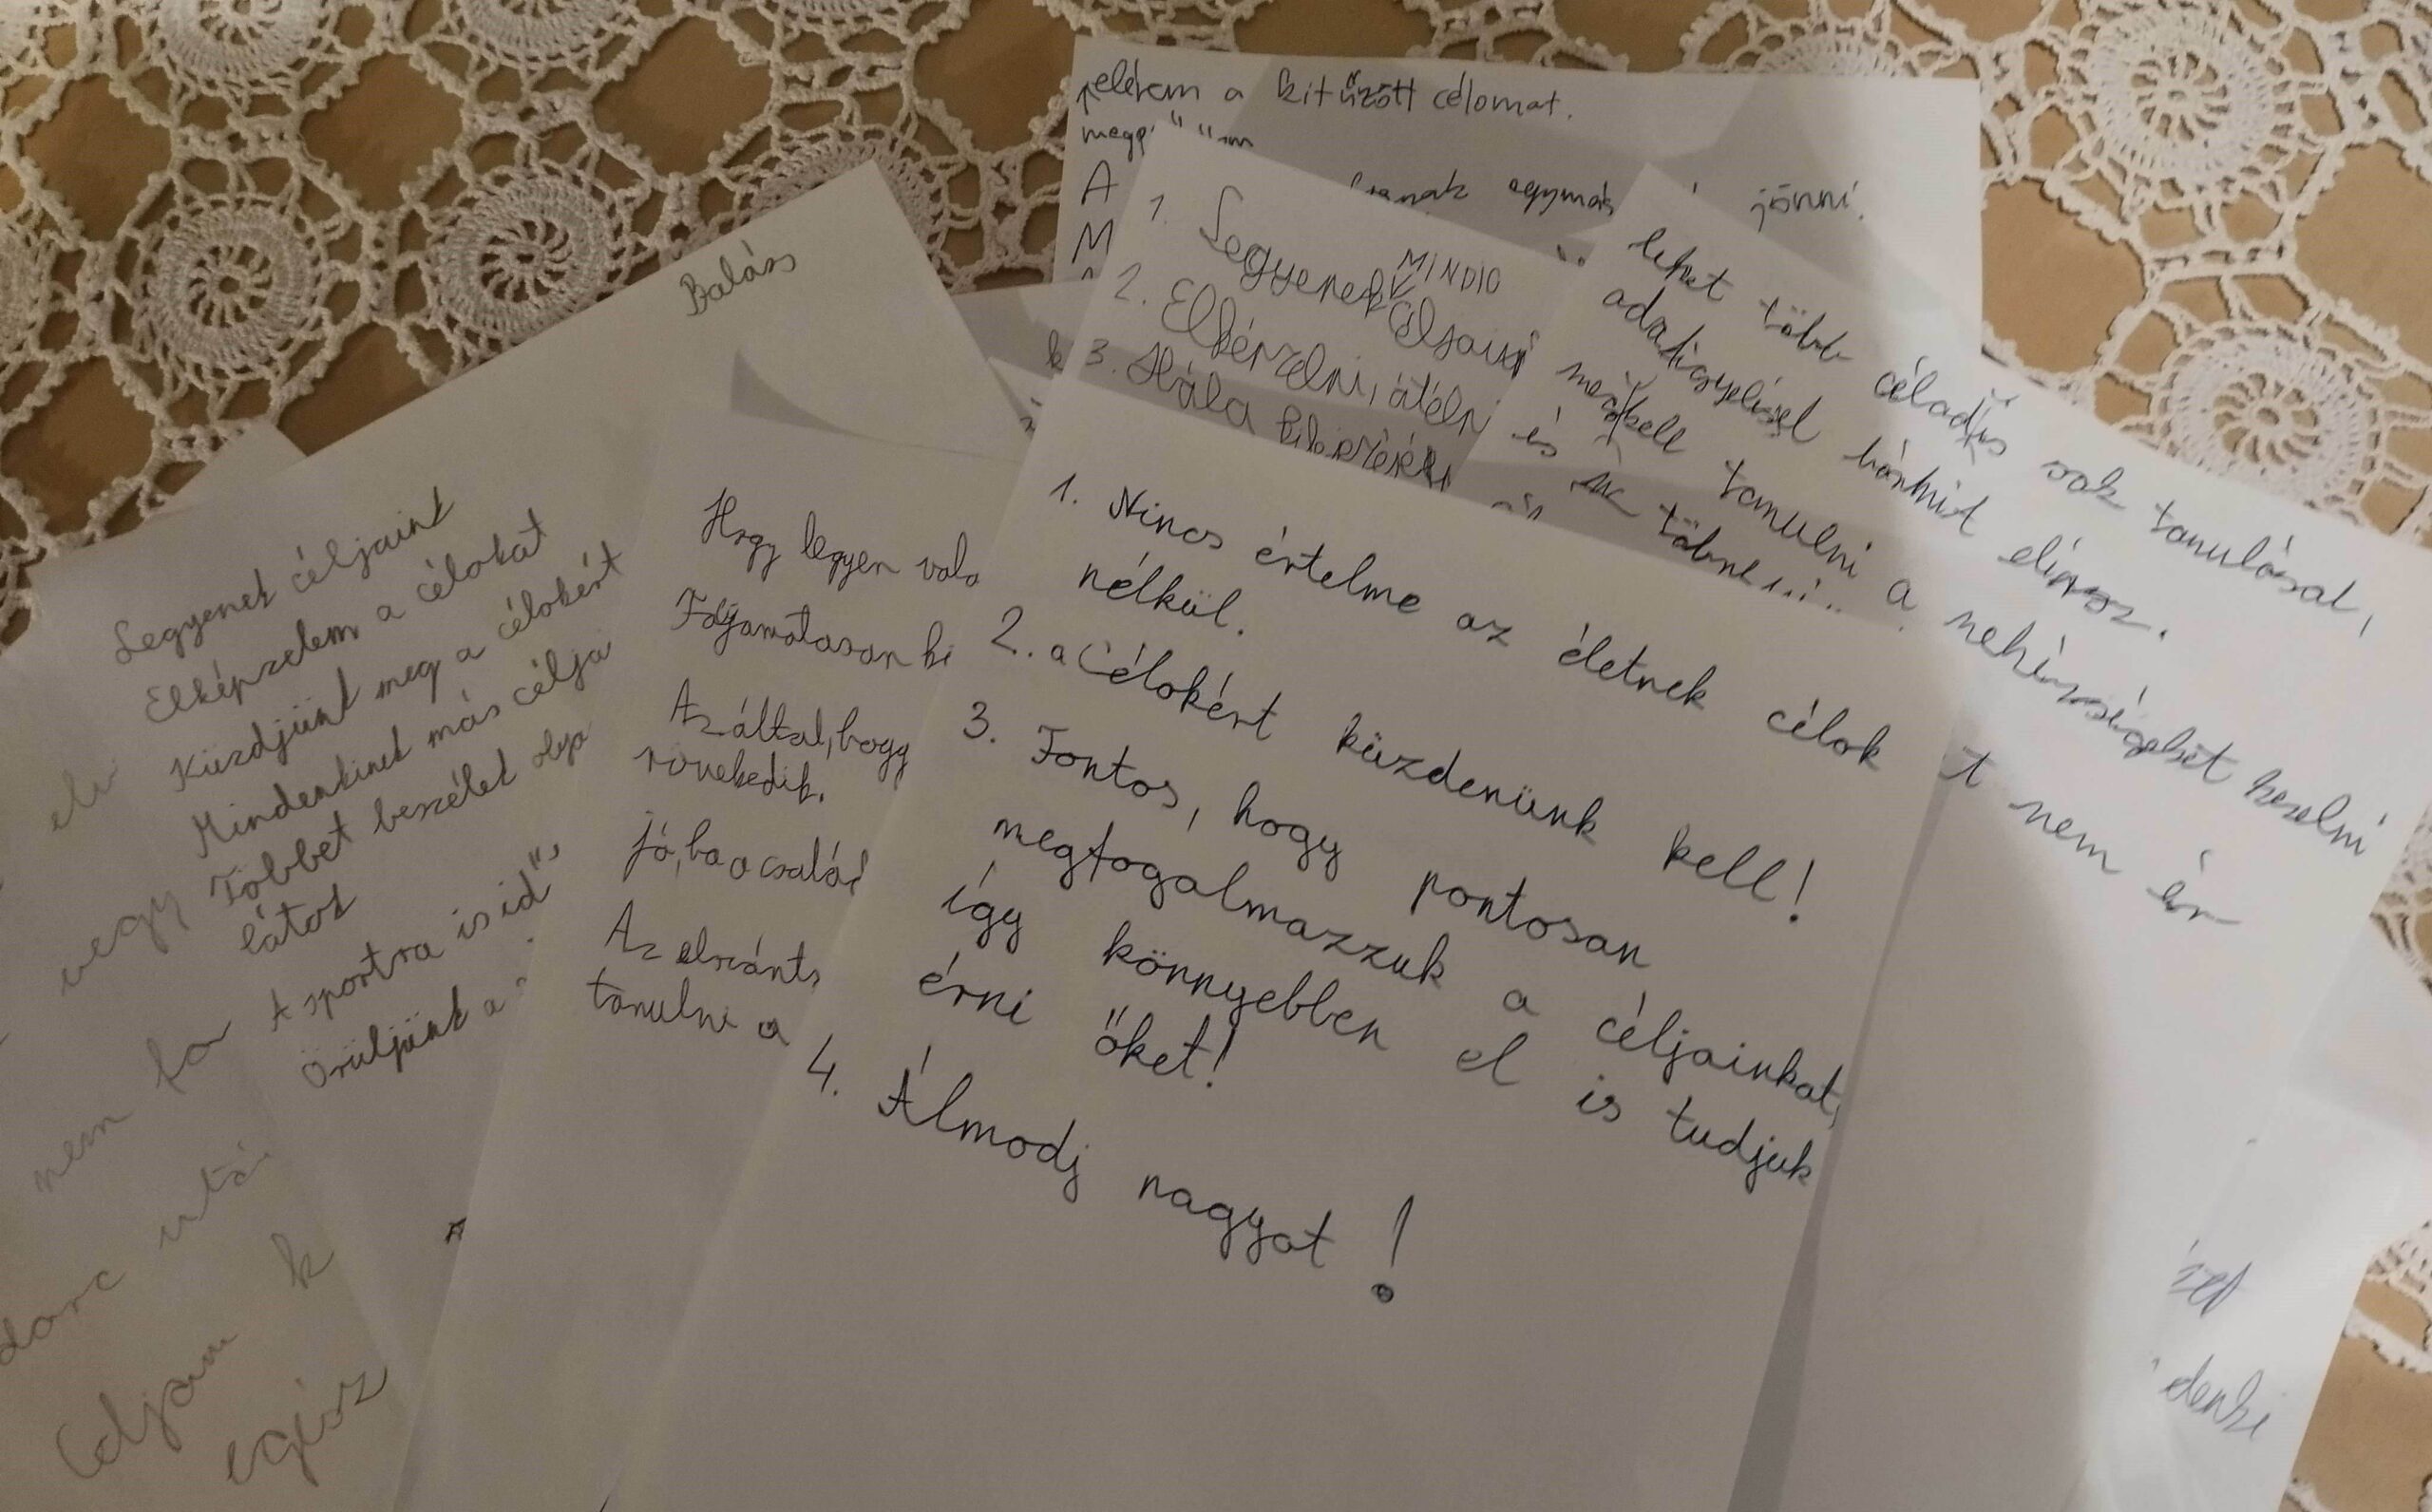 elérem a kitűzött célomat.
A egymás jönni.
M
1. Legyenek MINDIG céljaink
2. Elképzelni, átélni
3. Hála
lehet több céladás sok tanulással,
odafigyeléssel bármit elérsz.
meg kell tanulni a nehézségeket kezelni
és
t nem ér
Balázs
Legyenek céljaink
Elképzelem a célokat
Küzdjünk meg a célokért
Mindenkinek más célja
Többet beszélek olya
látok
A sportra is id
Örüljünk a
Hogy legyen vala
Folyamatosan ki
Azáltal, hogy
növekedik.
jó, ha a család
Az elszánts
tanulni a
1. Nincs értelme az életnek célok
nélkül.
2. a Célokért küzdenünk kell!
3. Fontos, hogy pontosan
megfogalmazzuk a céljainkat,
így könnyebben el is tudjuk
érni őket!
4. Álmodj nagyot!
vegy
nem fa
darc utá
k
Céljaim
egész
denki